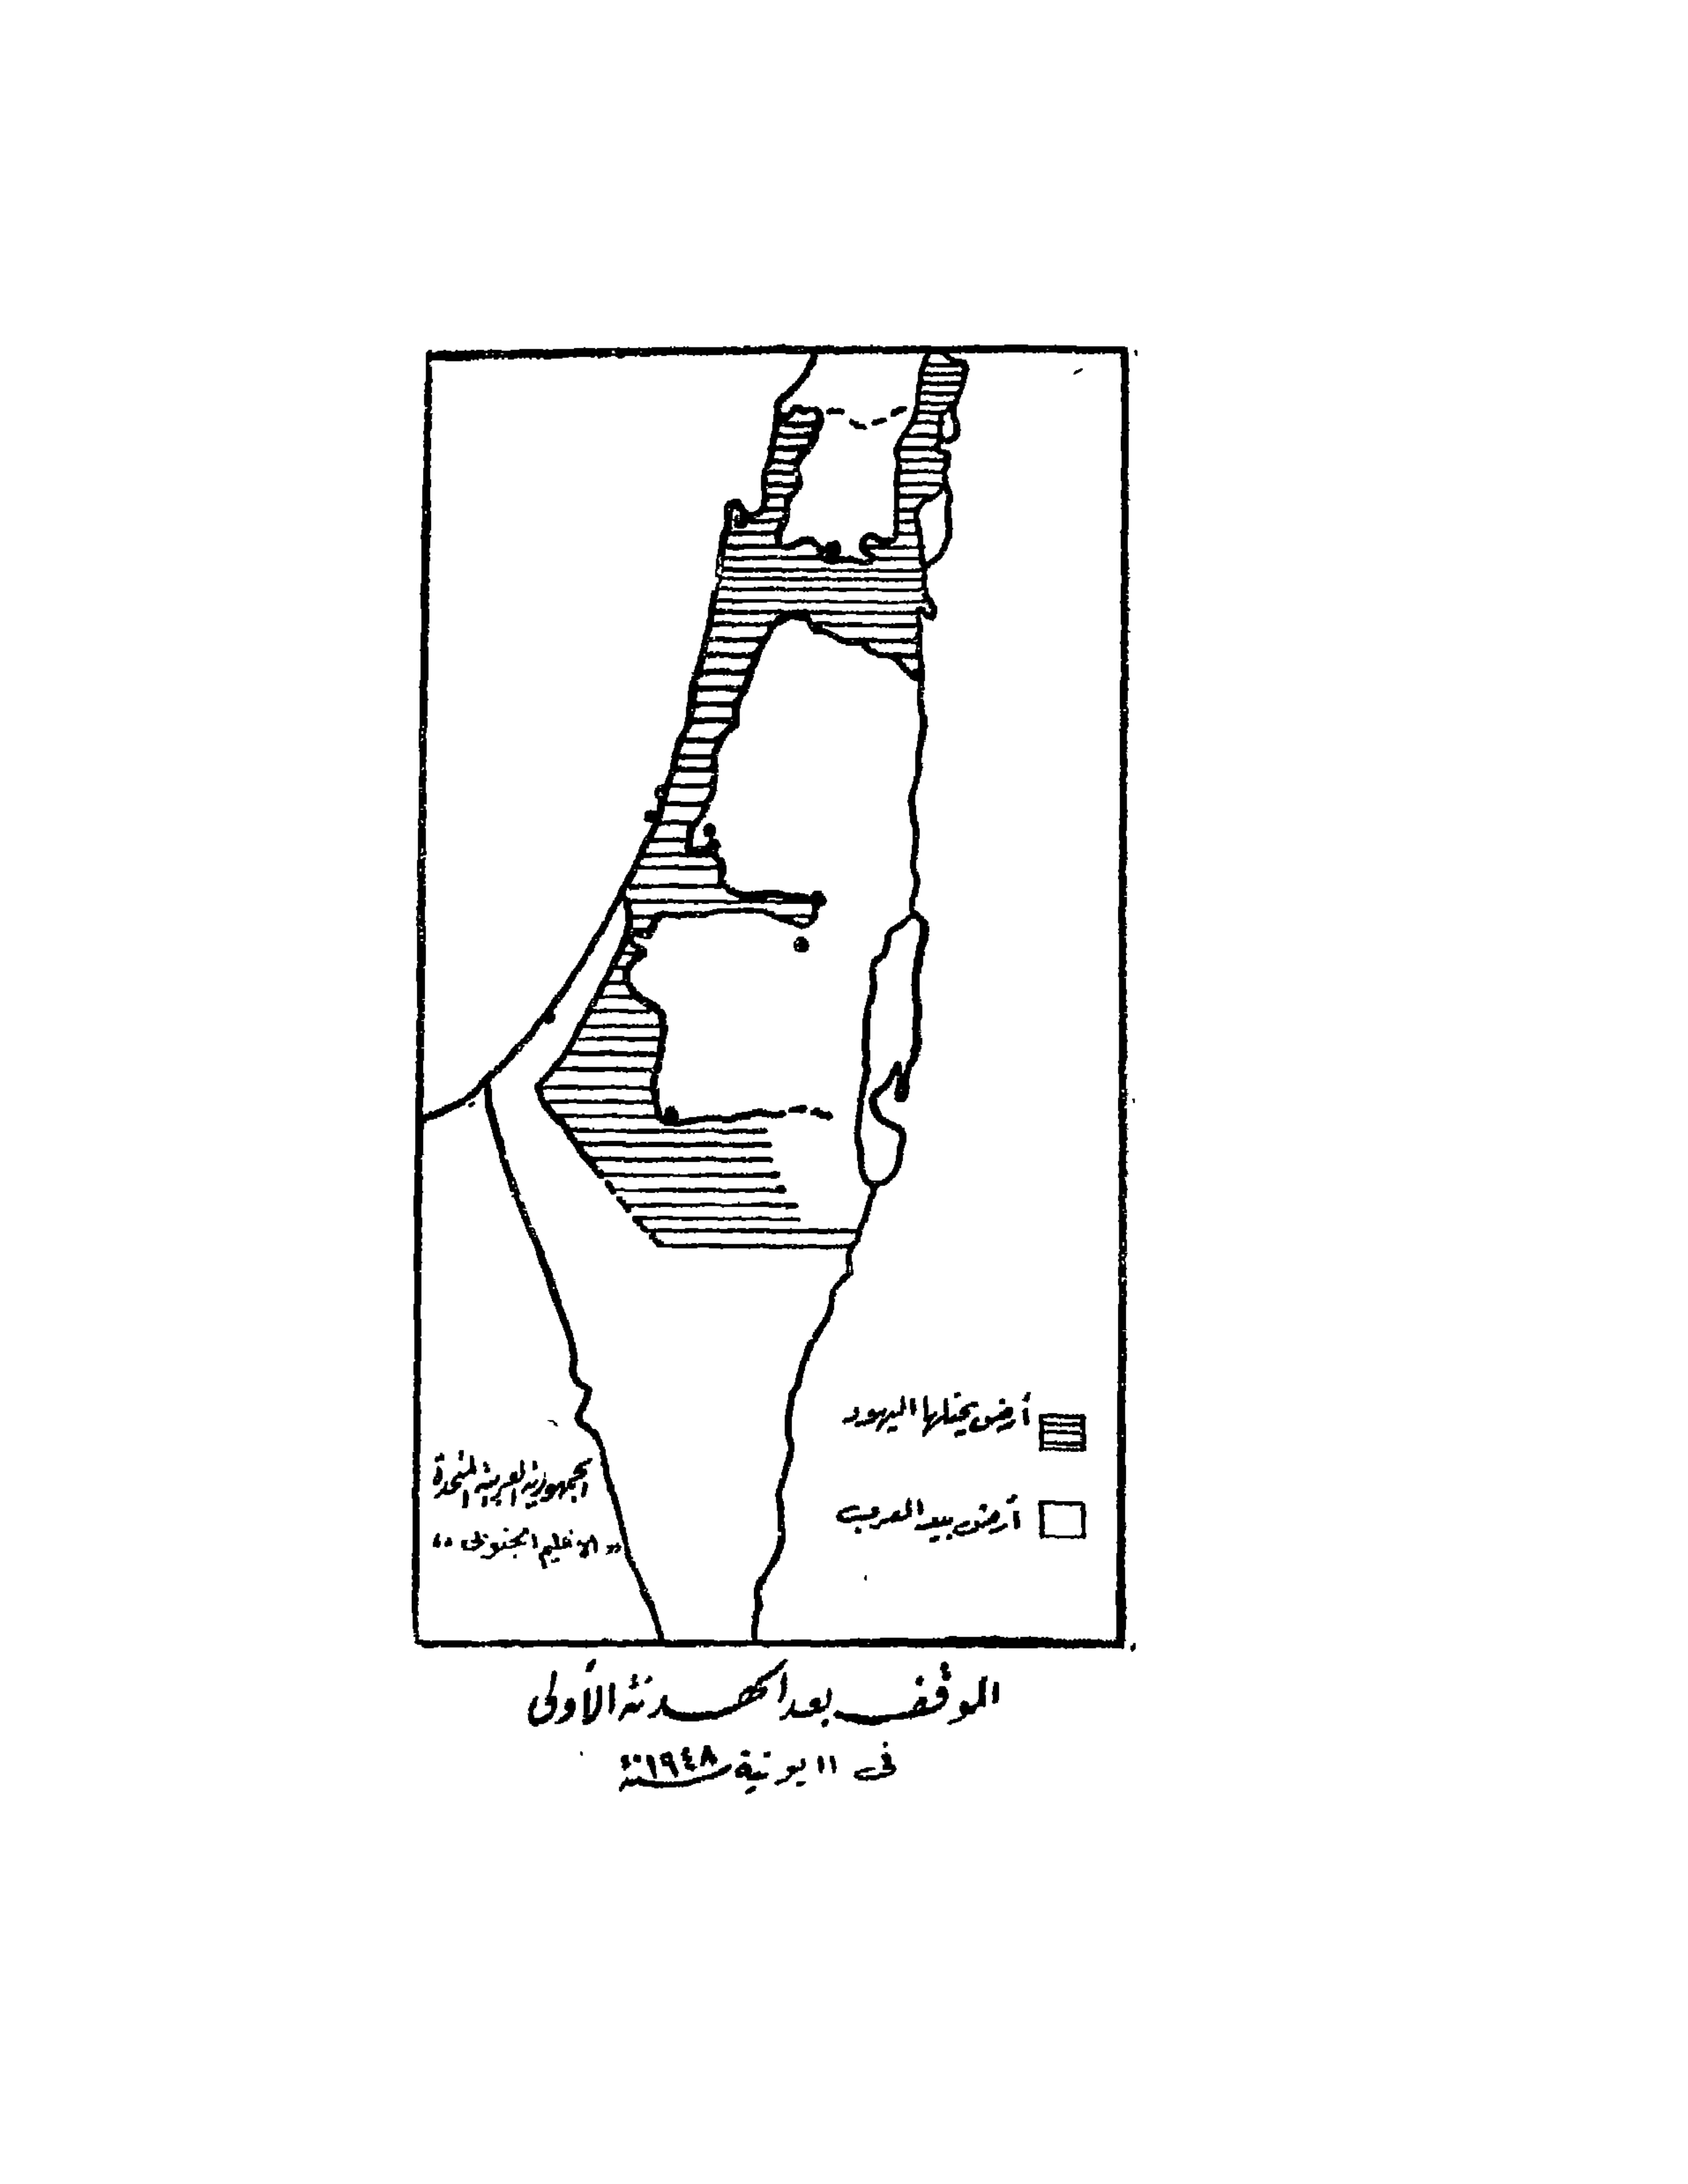 أرض يحتلها اليهود
أرض بيد العرب
الجمهورية العربية المتحدة
" الاقليم الجنوبى "
الموقف بعد الهدنة الأولى
فى ١١ يونية سنة ١٩٤٨